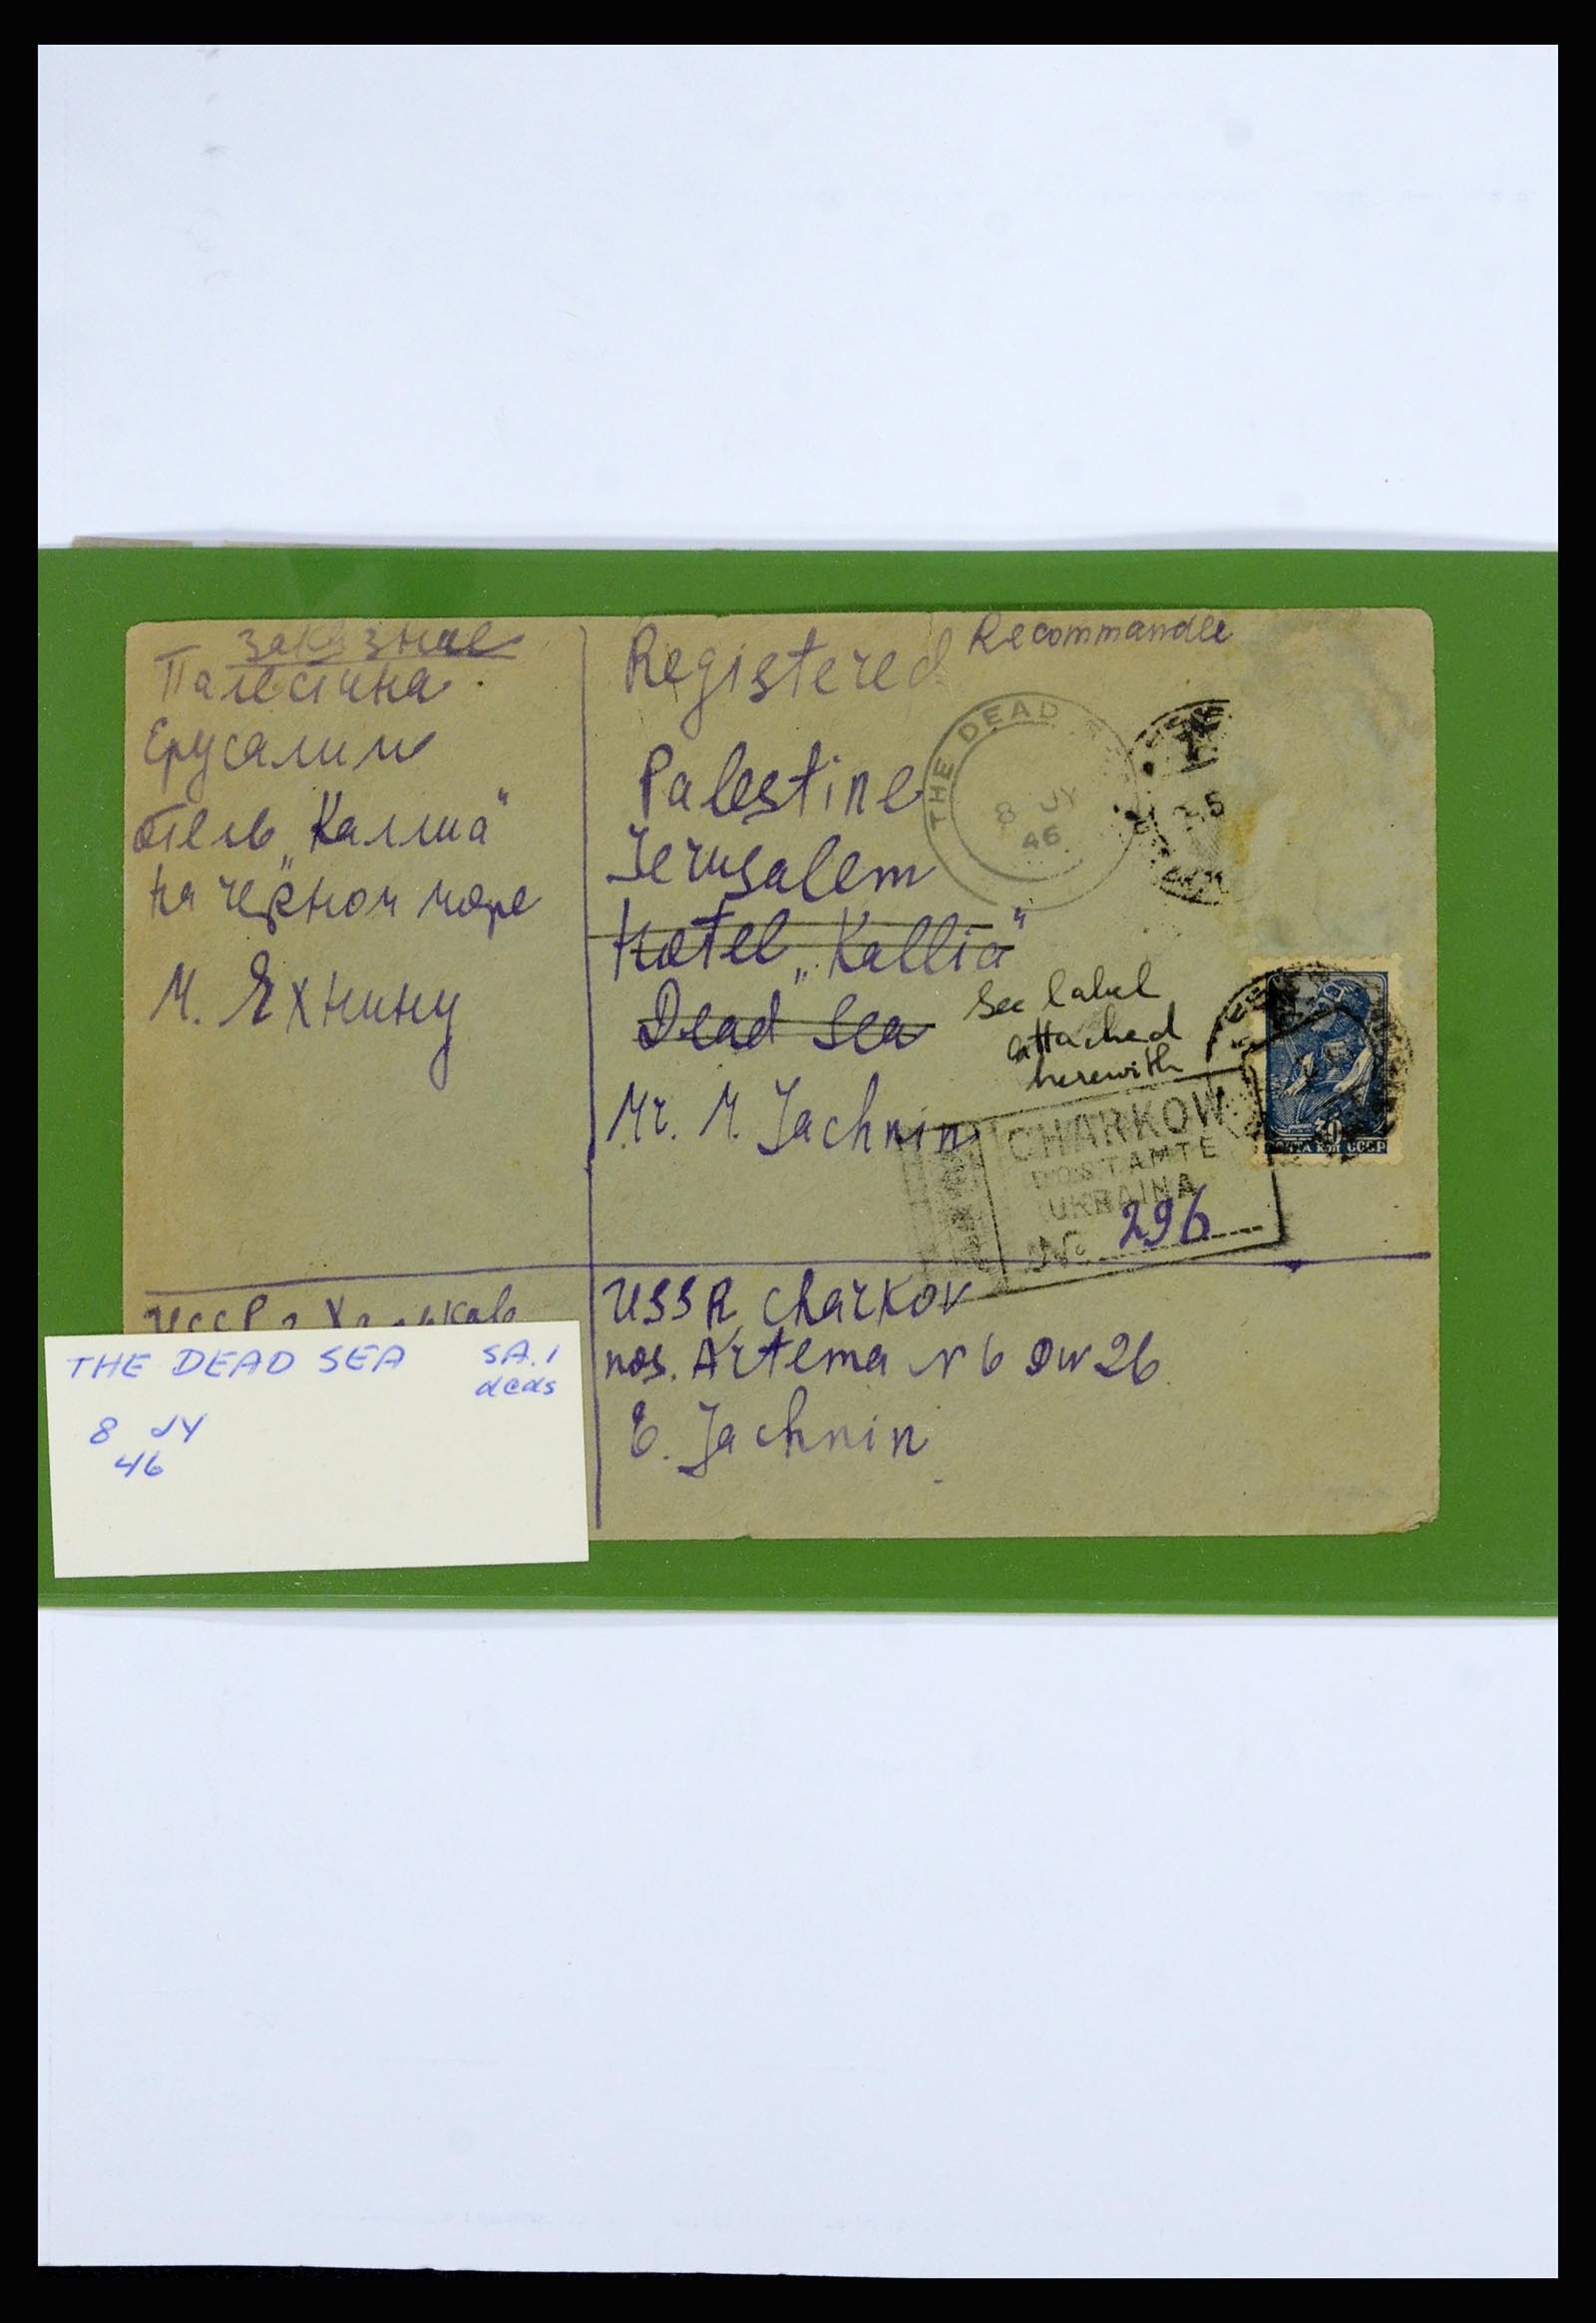 Заказное
Палестина
Ерусалим
Отель „Каллиа"
на чёрном море
М. Яхнину
Registered
Recommandee
Palestine
Jerusalem
Hotel „Kallia"
Dead Sea
See label
attached
herewith
Mr. M. Jachnin
THE DEAD
8 JY
46
CHARKOW
POSTAMTE
UKRAINA
№ 296
30
ПОЧТА КОП СССР
USSR Charkov
pos. Artema N 6 Qw 26
E. Jachnin
THE DEAD SEA
SA.1
dcds
8 JY
46